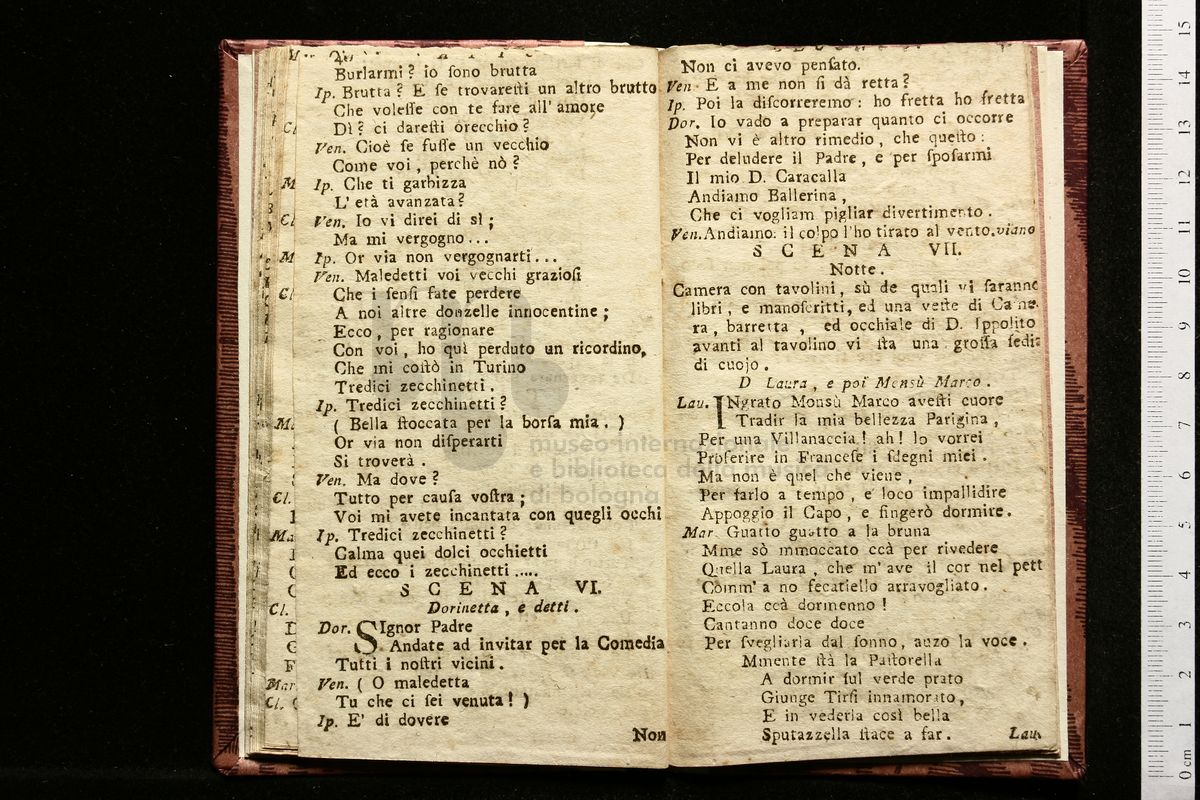 Burlarmi? io ſono brutta
Ip. Brutta? E ſe trovareſti un altro brutto
Che voleſſe con te fare all' amore
Dì? ci dareſti orecchio?
Ven. Cioè ſe fuſſe un vecchio
Come voi, perchè nò?
Ip. Che ti garbizza
L' età avanzata?
Ven. Io vi direi di sì;
Ma mi vergogno...
Ip. Or via non vergognarti...
Ven. Maledetti voi vecchi grazioſi
Che i ſenſi fate perdere
A noi altre donzelle innocentine;
Ecco, per ragionare
Con voi, ho quì perduto un ricordino,
Che mi coſtò in Turino
Tredici zecchinetti.
Ip. Tredici zecchinetti?
( Bella ſtoccata per la borſa mia. )
Or via non diſperarti
Si troverà.
Ven. Ma dove?
Tutto per cauſa voſtra;
Voi mi avete incantata con quegli occhi
Ip. Tredici zecchinetti?
Calma quei dolci occhietti
Ed ecco i zecchinetti.....
S C E N A VI.
Dorinetta, e detti.
Dor. SIgnor Padre
Andate ad invitar per la Comedia
Tutti i noſtri vicini.
Ven. ( O maledetta
Tu che ci ſei venuta! )
Ip. E' di dovere
Non
Non ci avevo penſato.
Ven. E a me non ſi dà retta?
Ip. Poi la diſcorreremo: ho fretta ho fretta
Dor. Io vado a preparar quanto ci occorre
Non vi è altro rimedio, che queſto:
Per deludere il Padre, e per ſpoſarmi
Il mio D. Caracalla
Andiamo Ballerina,
Che ci vogliam pigliar divertimento.
Ven. Andiamo: il colpo l'ho tirato al vento. viano
S C E N A VII.
Notte.
Camera con tavolini, sù de quali vi ſaranno
libri, e manoſcritti, ed una veſte di Came-
ra, barretta, ed occhiale di D. Ippolito
avanti al tavolino vi ſta una groſſa ſedia
di cuojo.
D Laura, e poi Monsù Marco.
Lau. INgrato Monsù Marco aveſti cuore
Tradir la mia bellezza Parigina,
Per una Villanaccia! ah! Io vorrei
Proferire in Franceſe i ſdegni miei.
Ma non è quel che viene,
Per farlo a tempo, e loco impallidire
Appoggio il Capo, e fingerò dormire.
Mar. Guatto guatto a la bruna
Mme sò mmoccato ccà per rivedere
Quella Laura, che m' ave il cor nel pett
Comm' a no fecatiello arravogliato.
Eccola ccà dormenno!
Cantanno doce doce
Per ſvegliarla dal ſonno, auzo la voce.
Mmente ſtà la Paſtorella
A dormir ſul verde prato
Giunge Tirſi innamorato,
E in vederla così bella
Sputazzella ſtace a far.
Lau.
museo internazionale
e biblioteca della musica
di bologna
15
14
13
12
11
10
9
8
7
6
5
4
3
2
1
0 cm